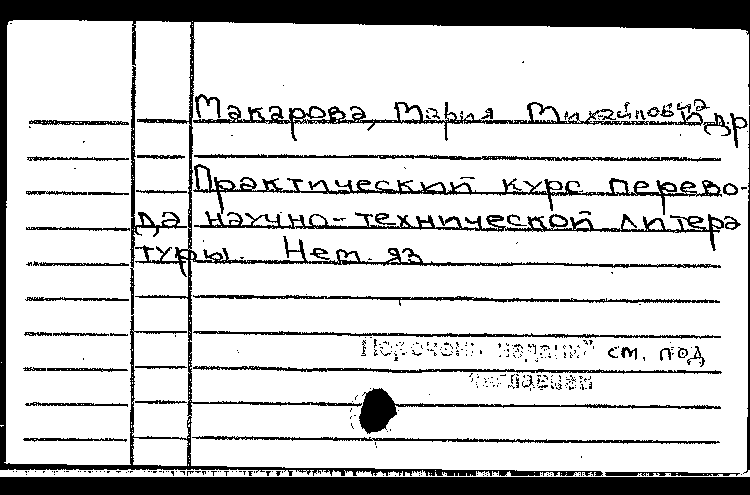 Макарова, Мария Михайловна др
Практический курс перево-
да научно-технической литера
туры. Нем. яз
Перечень изданий см. под
заглавием